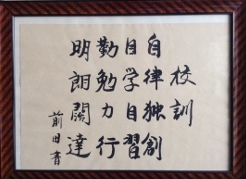 校訓
自律独創
自学自習
勤勉力行
明朗闊達
前田書